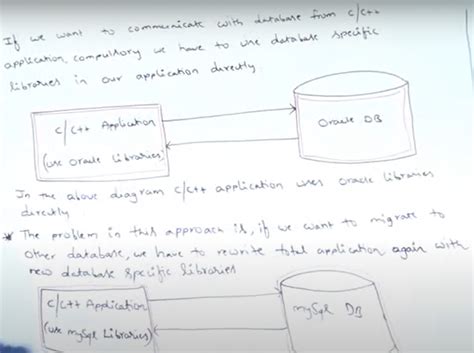 If we want to communicate with database from c/c++
application, compulsory we have to use database specific
libraries in our application directly.
c/c++ Application
(use oracle Libraries)
Oracle DB
In the above diagram c/c++ application uses oracle libraries
directly
* The problem in this approach is, if we want to migrate to
other database, we have to rewrite total application again with
new database specific libraries
c/c++ Application
(use mySql Libraries)
mySql DB